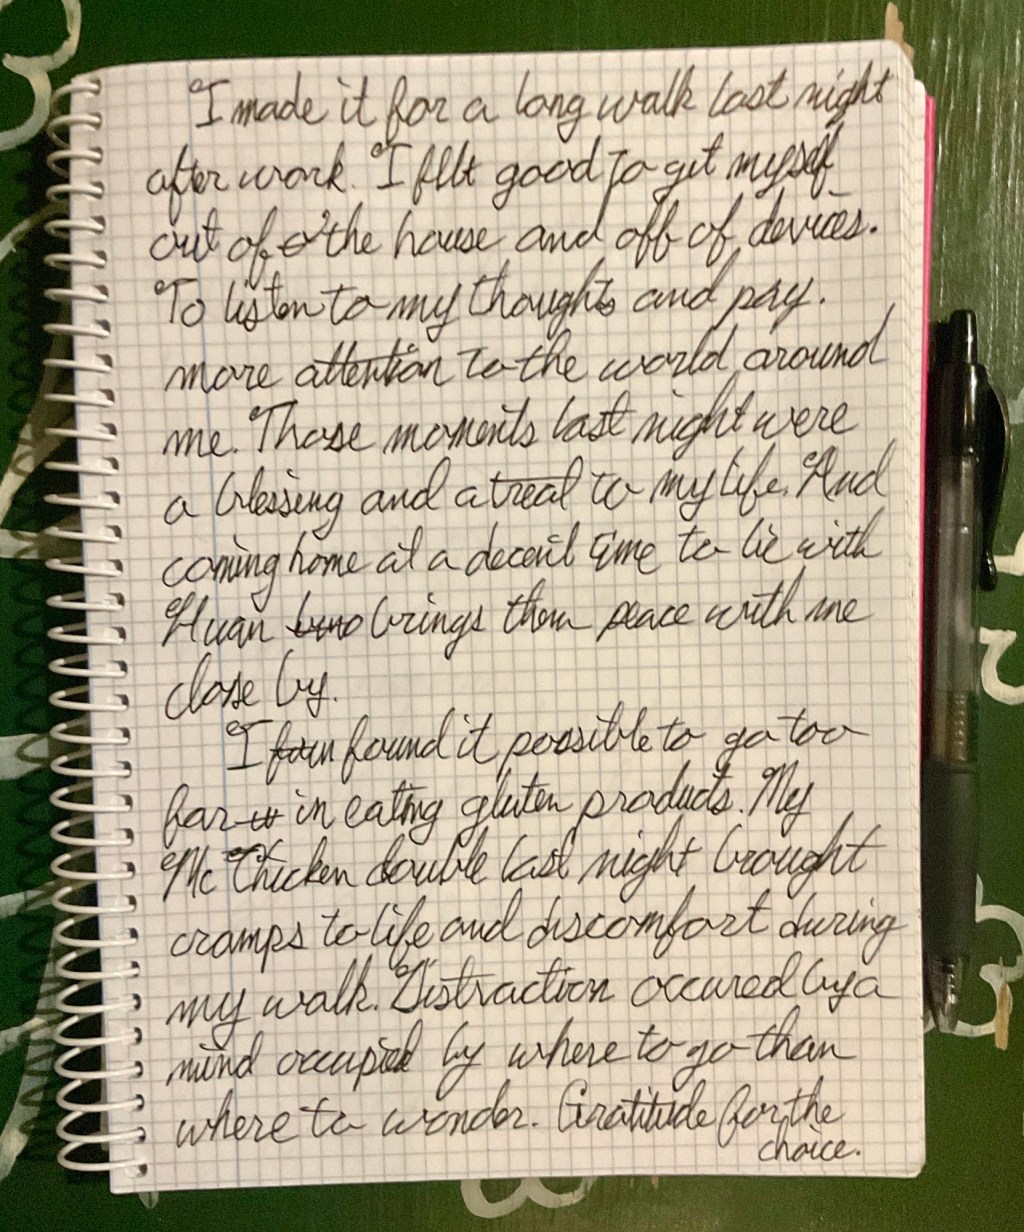 I made it for a long walk last night
after work. I felt good to get myself
out of the house and off of devices.
To listen to my thoughts and pay
more attention to the world around
me. Those moments last night were
a blessing and a treat to my life. And
coming home at a decent time to lie with
Huan brings them peace with me
close by.
I found it possible to go too
far in eating gluten products. My
McChicken double last night brought
cramps to life and discomfort during
my walk. Distraction occured by a
mind occupied by where to go than
where to wonder. Gratitude for the
choice.